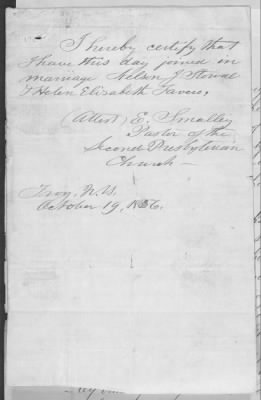 I hereby certify that
I have this day joined in
marriage Nelson J Stowal
& Helen Elizabeth Tavers,
(Attest) E. Smalley
Pastor of the
Second Presbyterian
Church —
Troy, N.Y.
October 19, 1856.